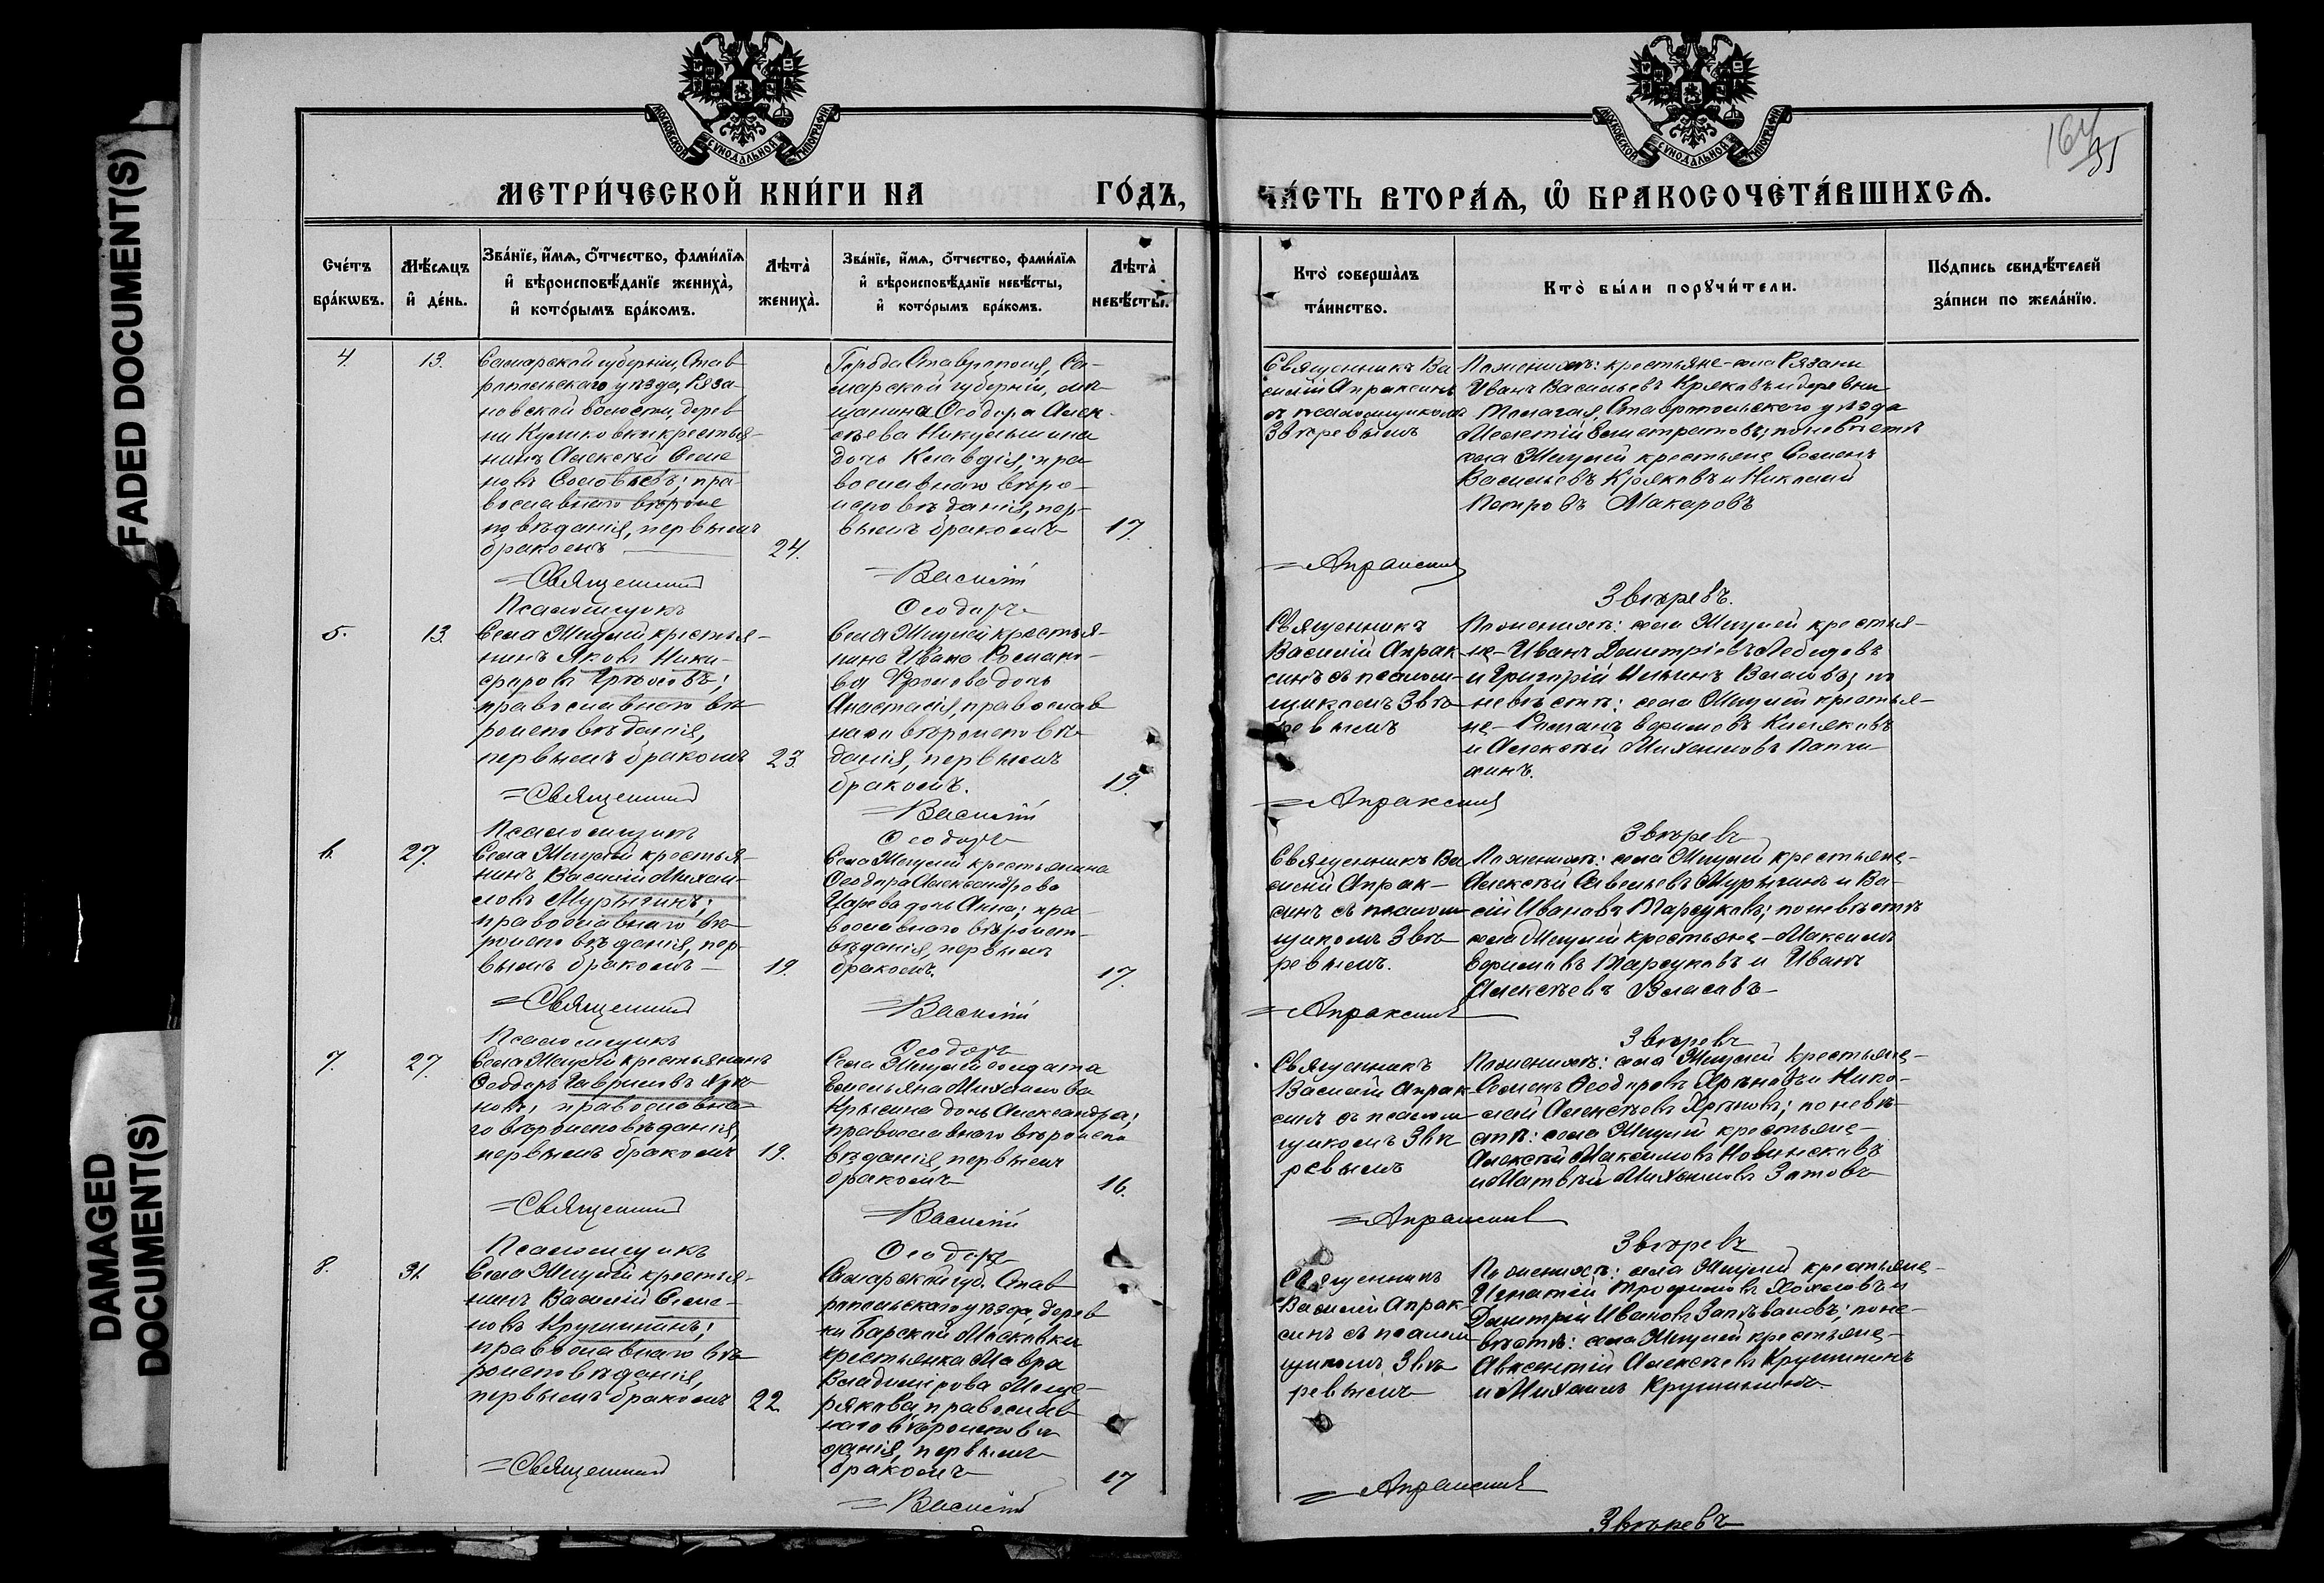 FADED DOCUMENT(S)
DAMAGED
DOCUMENT(S)
МОСКОВСКОЙ СѴНОДАЛЬНОЙ ТИПОГРАФІИ
МОСКОВСКОЙ СѴНОДАЛЬНОЙ ТИПОГРАФІИ
МЕТРИ́ЧЕСКОЙ КНИ́ГИ НА ГО́ДЪ,
ЧА́СТЬ ВТОРА́Ѧ, Ѽ БРАКОСОЧЕТА́ВШИХСѦ.
Сче́тъ
бра́кѡвъ.
Мѣ́сѧцъ
и҆ де́нь.
Зва́нїе, и҆́мѧ, ѻ҆́тчество, фами́лїѧ
и҆ вѣроисповѣ́данїе жениха̀,
и҆ кото́рымъ бра́комъ.
Лѣта̀
жениха̀.
Зва́нїе, и҆́мѧ, ѻ҆́тчество, фами́лїѧ
и҆ вѣроисповѣ́данїе невѣ́сты,
и҆ кото́рымъ бра́комъ.
Лѣта̀
невѣ́сты.
Кто̀ соверша̀лъ
та́инство.
Кто̀ бы́ли порꙋчи́тели.
По́дпись свидѣ́телей
за́писи по жела́нїю.
4.
13.
Самарской губерніи, Став
ропольскаго уѣзда, Ряза-
новской волости, дерев
ни Куликовки крестья-
нинъ Алексѣй Семе
новъ Соловьевъ; пра-
вославнаго вѣроис
повѣданія, первымъ
бракомъ
24.
Города Ставрополя, Са-
марской губерніи, мѣ
щанина Ѳеодора Алек-
сѣева Никульшина
дочь Клавдія; пра
вославнаго вѣро-
исповѣданія, пер-
вымъ бракомъ
17.
Священникъ Ва
силій Апраксинъ
съ псаломщикомъ
Звѣревымъ
По женихѣ: крестьяне села Рязани
Иванъ Васильевъ Кряковъ и деревни
Ставропольскаго уѣзда
по невѣстѣ
села крестьяне Семенъ
Васильевъ Кряковъ и Николай
Петровъ Макаровъ
Священникъ
Василій
Апраксинъ
Псаломщикъ
Ѳеодоръ
Звѣревъ.
5.
13.
Села крестья-
нинъ Яковъ Ники-
форовъ
православнаго вѣ
роисповѣданія,
первымъ бракомъ
23.
Села крестья-
нина Ивана Романо-
ва Фролова дочь
Анастасія, православ
наго вѣроисповѣ-
данія, первымъ
бракомъ.
19.
Священникъ
Василій Апрак
синъ съ псалом
щикомъ Звѣ
ревымъ
По женихѣ: села крестья-
не Иванъ Димитріевъ Лебедевъ
и Григорій Ильинъ Власовъ; по
невѣстѣ: села крестья-
не Романъ Ефимовъ Кисляковъ
и Алексѣй Михаиловъ
Священникъ
Василій
Апраксинъ
Псаломщикъ
Ѳеодоръ
Звѣревъ
6.
27.
Села крестья-
нинъ Василій Михаи-
ловъ Мурыгинъ;
православнаго вѣ
роисповѣданія, пер-
вымъ бракомъ
19.
Села крестьянина
Ѳеодора Александрова
Царева дочь Анна; пра
вославнаго вѣроиспо-
вѣданія, первымъ
бракомъ.
17.
Священникъ Ва
силій Апрак-
синъ съ псалом
щикомъ Звѣ
ревымъ.
По женихѣ: села крестьяне-
Алексѣй Савельевъ Мурыгинъ и Ва-
сій Ивановъ Барсуковъ; по невѣстѣ
села крестьяне Максимъ
Ефимовъ Барсуковъ и Иванъ
Алексѣевъ Власовъ
Священникъ
Василій
Апраксинъ
Псаломщикъ
Ѳеодоръ
Звѣревъ
7.
27.
Села крестьянинъ
Ѳеодоръ Гавриловъ Хрѣ-
новъ; православна
го вѣроисповѣданія,
первымъ бракомъ
19.
Села солдата
Емельяна Михаилова
Крысина дочь Александра;
православнаго вѣроиспо
вѣданія, первымъ
бракомъ
16.
Священникъ
Василій Апрак
синъ съ псалом
щикомъ Звѣ
ревымъ
По женихѣ: села крестьяне-
Семенъ Ѳеодоровъ Хрѣновъ и Нико-
лай Алексѣевъ Хрѣновъ; по невѣ-
стѣ: села крестьяне-
Алексѣй Максимовъ
и Матвѣй Михаиловъ Зотовъ
Священникъ
Василій
Апраксинъ
Псаломщикъ
Ѳеодоръ
Звѣревъ
8.
31.
Села крестья-
нинъ Василій Семе-
новъ Крушининъ;
православнаго вѣ
роисповѣданія,
первымъ бракомъ
22
Самарской губ. Став
ропольскаго уѣзда, дерев
ни Барской Московки
крестьянка Мавра
Владимірова Меще-
рякова, православ
наго вѣроисповѣ
данія, первымъ
бракомъ
17
Священникъ
Василій Апрак
синъ съ псалом
щикомъ Звѣ
ревымъ
По женихѣ: села крестьяне-
Игнатій Трофимовъ Хохловъ и
Димитрій Ивановъ Запѣваловъ; по не-
вѣстѣ: села крестьяне-
Авксентій Алексѣевъ Крушининъ
и Михаилъ Крушининъ.
Священникъ
Василій
Апраксинъ
Звѣревъ